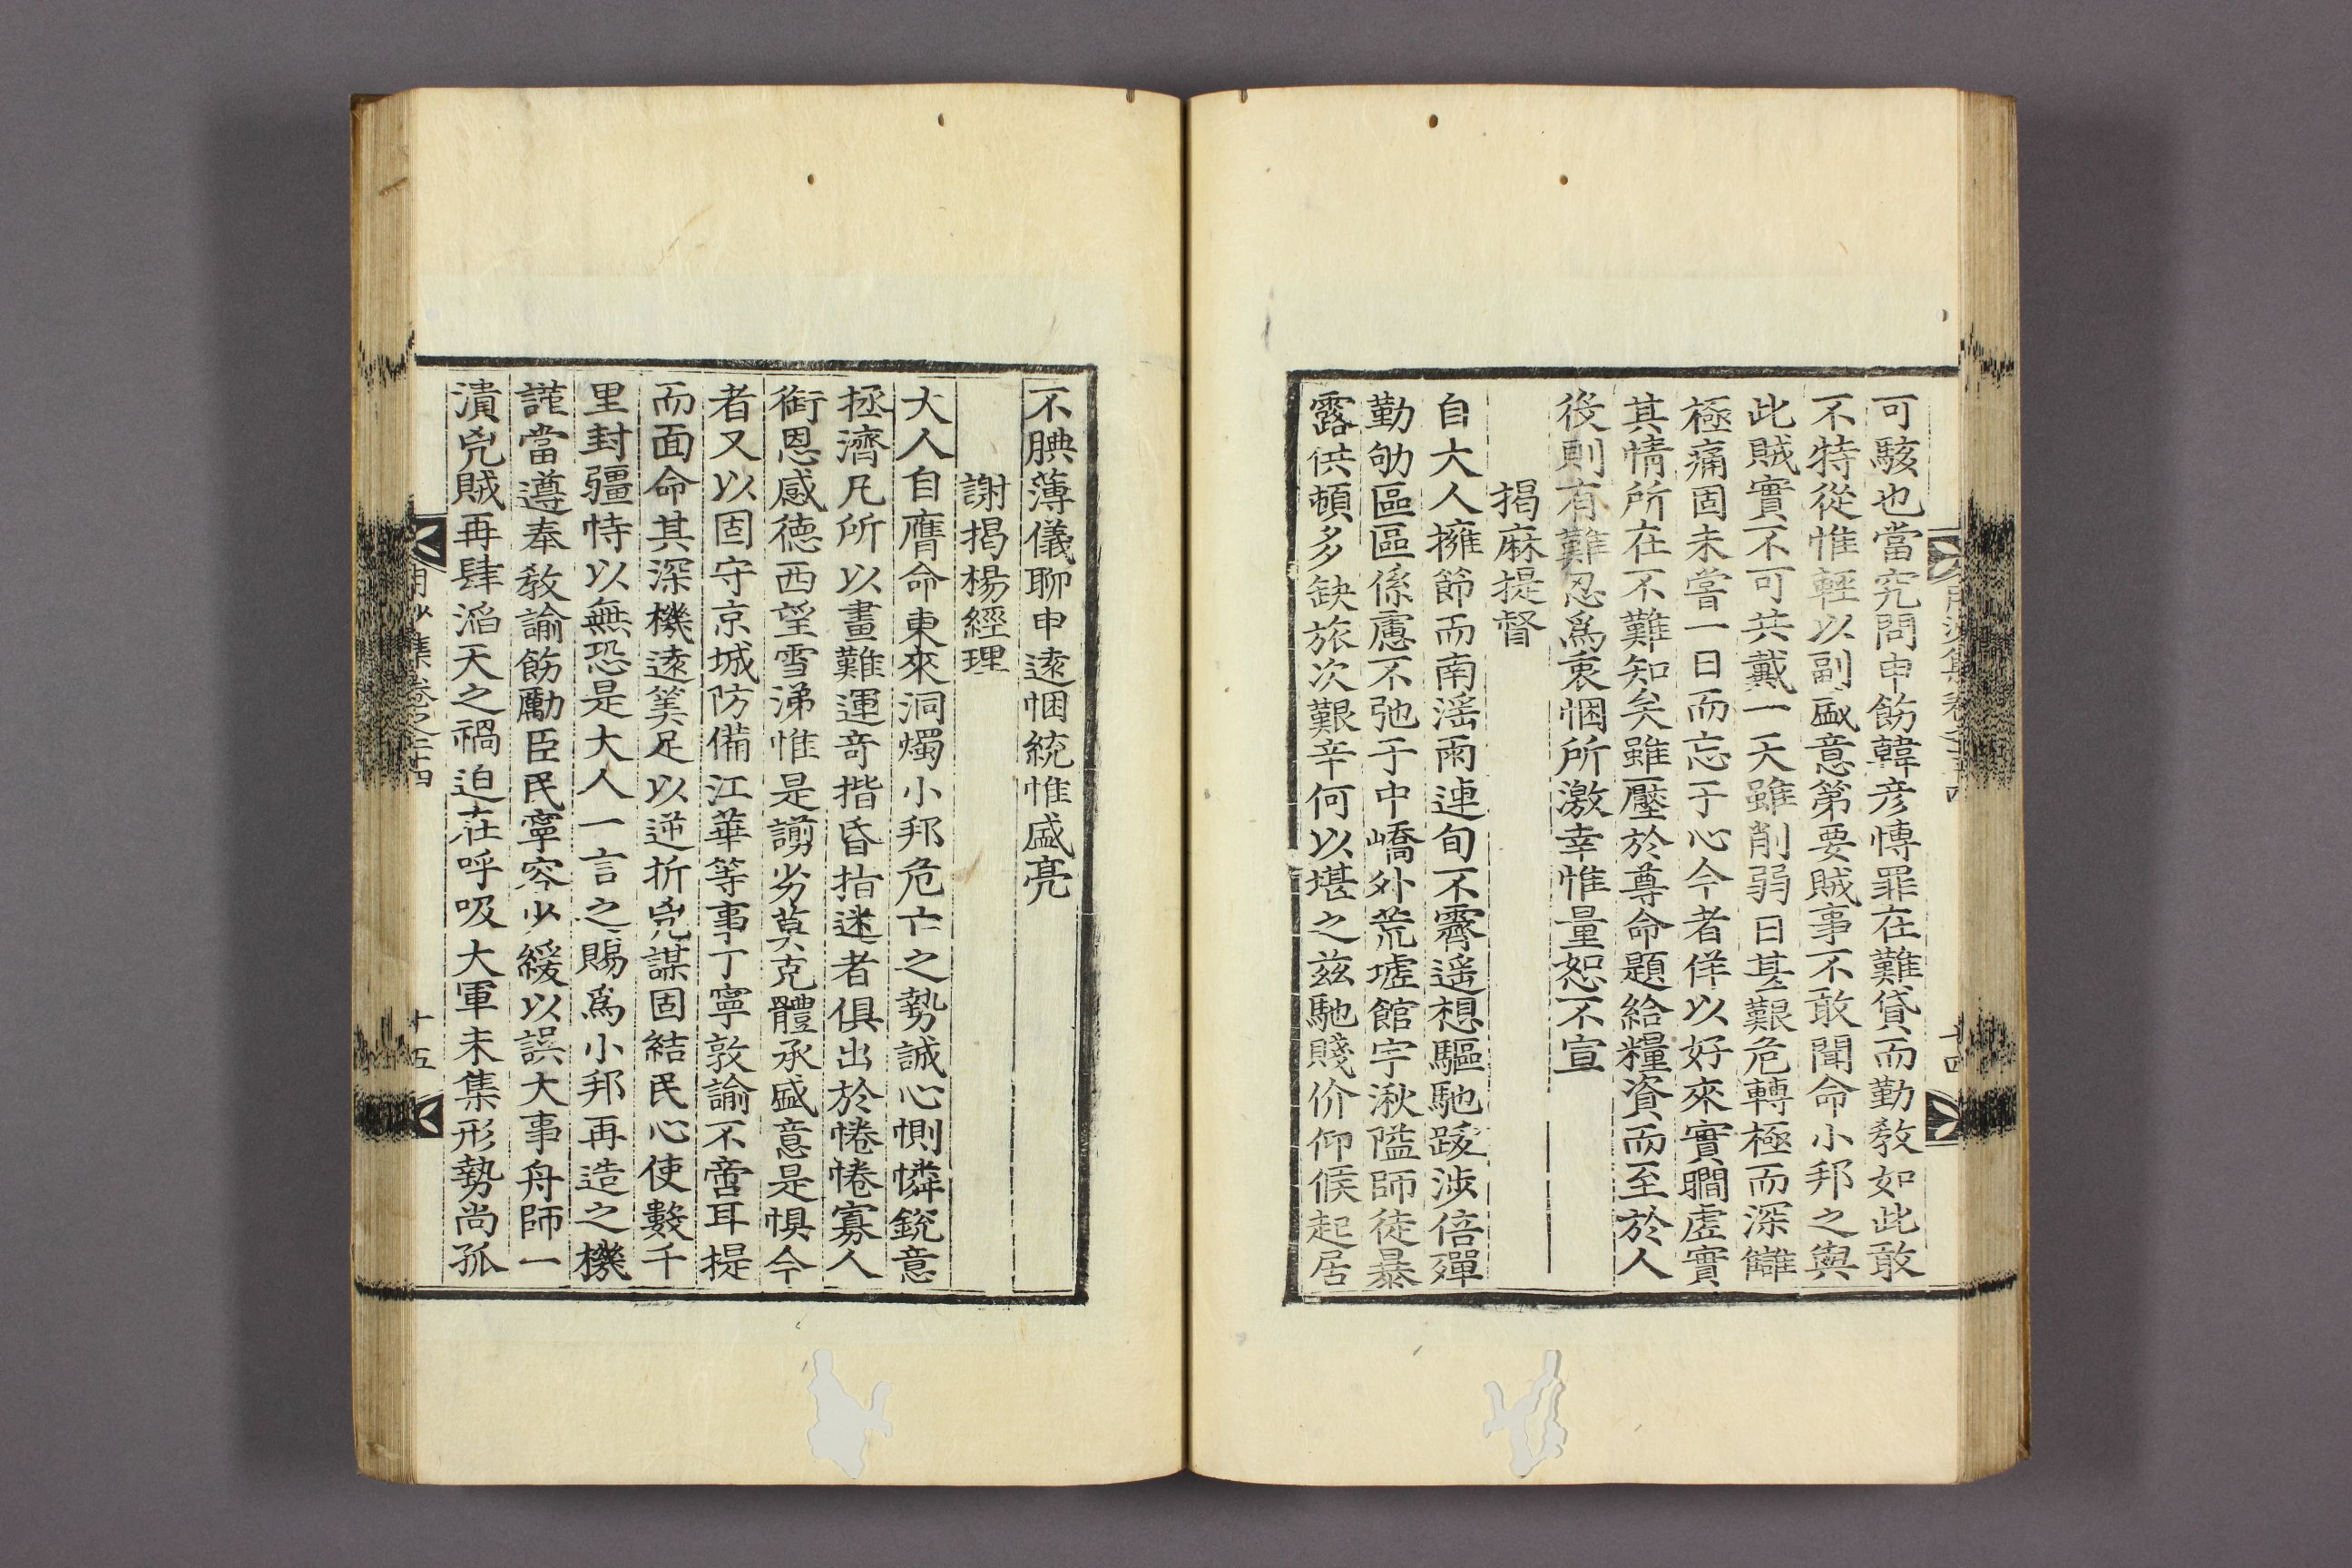 可駭也當究問申飭韓彦愽罪在難貸而勤敎如此敢
不特從惟輕以副盛意第要賊事不敢聞命小邦之與
此賊實不可共戴一天雖削弱日甚艱危轉極而深讎
極痛固未嘗一日而忘于心今者佯以好來實瞷虛實
其情所在不難知矣雖壓於尊命題給糧資而至於人
後則有難忍爲衷悃所激幸惟量恕不宣
揭麻提督
自大人擁節而南滛雨連旬不霽遥想驅馳跋涉倍殫
勤劬區區係慮不弛于中嶠外荒墟館宇湫隘師徒暴
露供頓多缺旅次艱辛何以堪之兹馳賤价仰候起居
不腆薄儀聊申遠悃統惟盛亮
謝揭楊經理
大人自膺命東來洞燭小邦危亡之勢誠心惻憐銳意
拯濟凡所以畫難運奇揩昏指迷者俱出於惓惓寡人
銜恩感德西望雪涕惟是謭劣莫克體承盛意是惧今
者又以固守京城防備江華等事丁寧敦諭不啻耳提
而面命其深機遠筭足以逆折兇謀固結民心使數千
里封疆恃以無恐是大人一言之賜爲小邦再造之機
謹當遵奉敎諭飭勵臣民寧容少緩以誤大事舟師一
潰兇賊再肆滔天之禍迫在呼吸大軍未集形勢尙孤
月沙集卷之二十四
十五